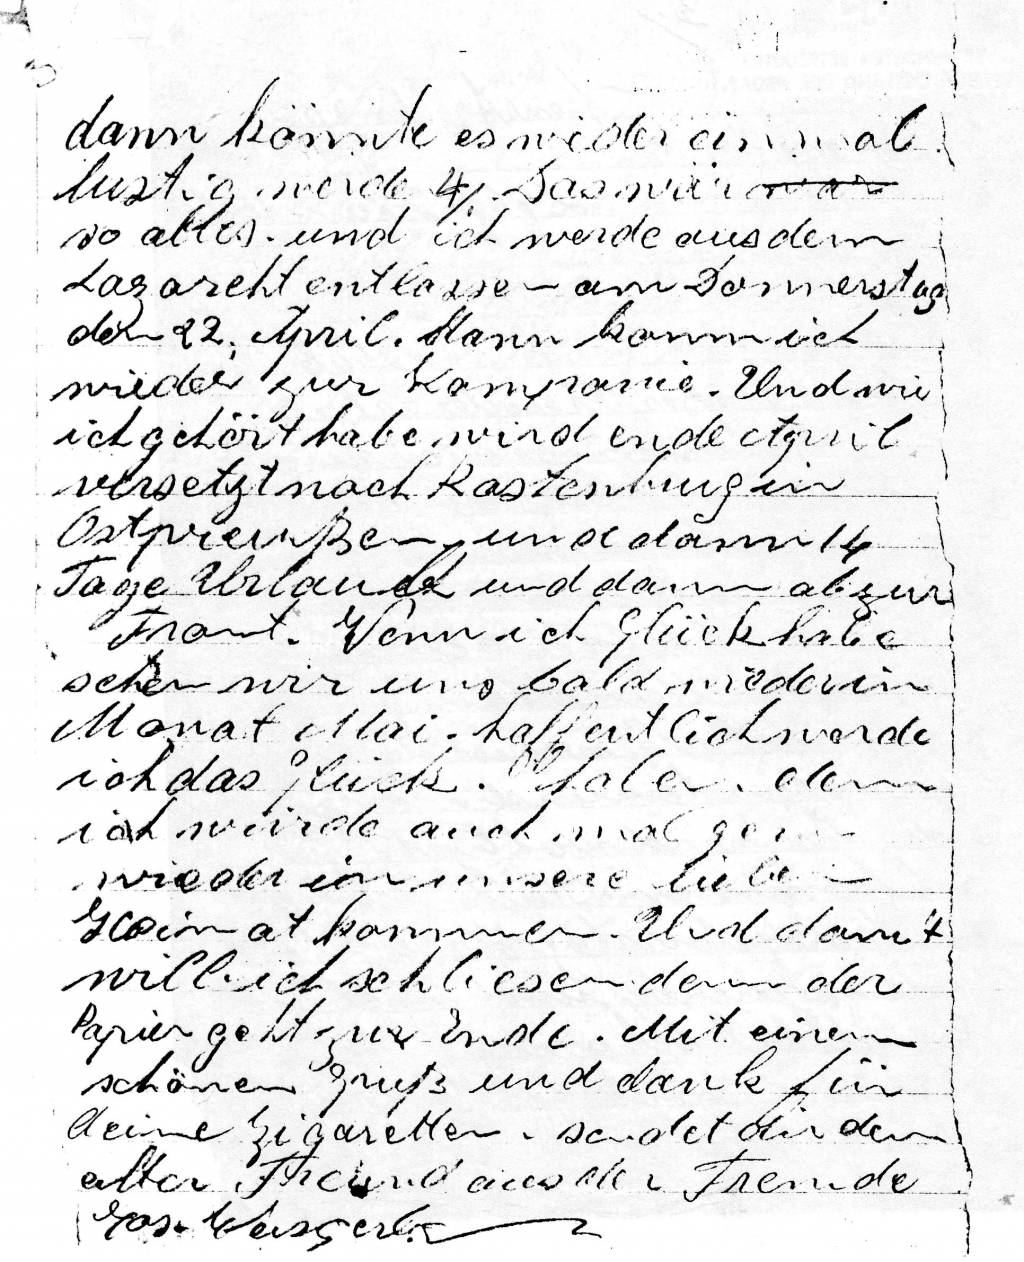 dann könnte es wieder einmal
lustig werde 4/. Das wär war
so alles. und ich werde aus dem
Lazareht entlassen am Donnerstag
den 22. April. Dann komm ich
wieder zur Kompanie. Und wie
ich gehört habe wird ende April
versetzt nach Rastenburg in
Ostpreußen und dann 14
Tage Urlaub und dann ab zur
Front. Wenn ich Glück habe
sehen wir uns bald wieder in
Monat Mai. hoffentlich werde
ich das Glück. haben. denn
ich würde auch mal gern
wieder in unsere lieben
Heimat kommen. Und damit
will ich schliesen denn der
Papier geht zur Ende. Mit einem
schönen Gruß und dank für
deine Zigaretten. sendet dir dein
alter Freund aus der Fremde